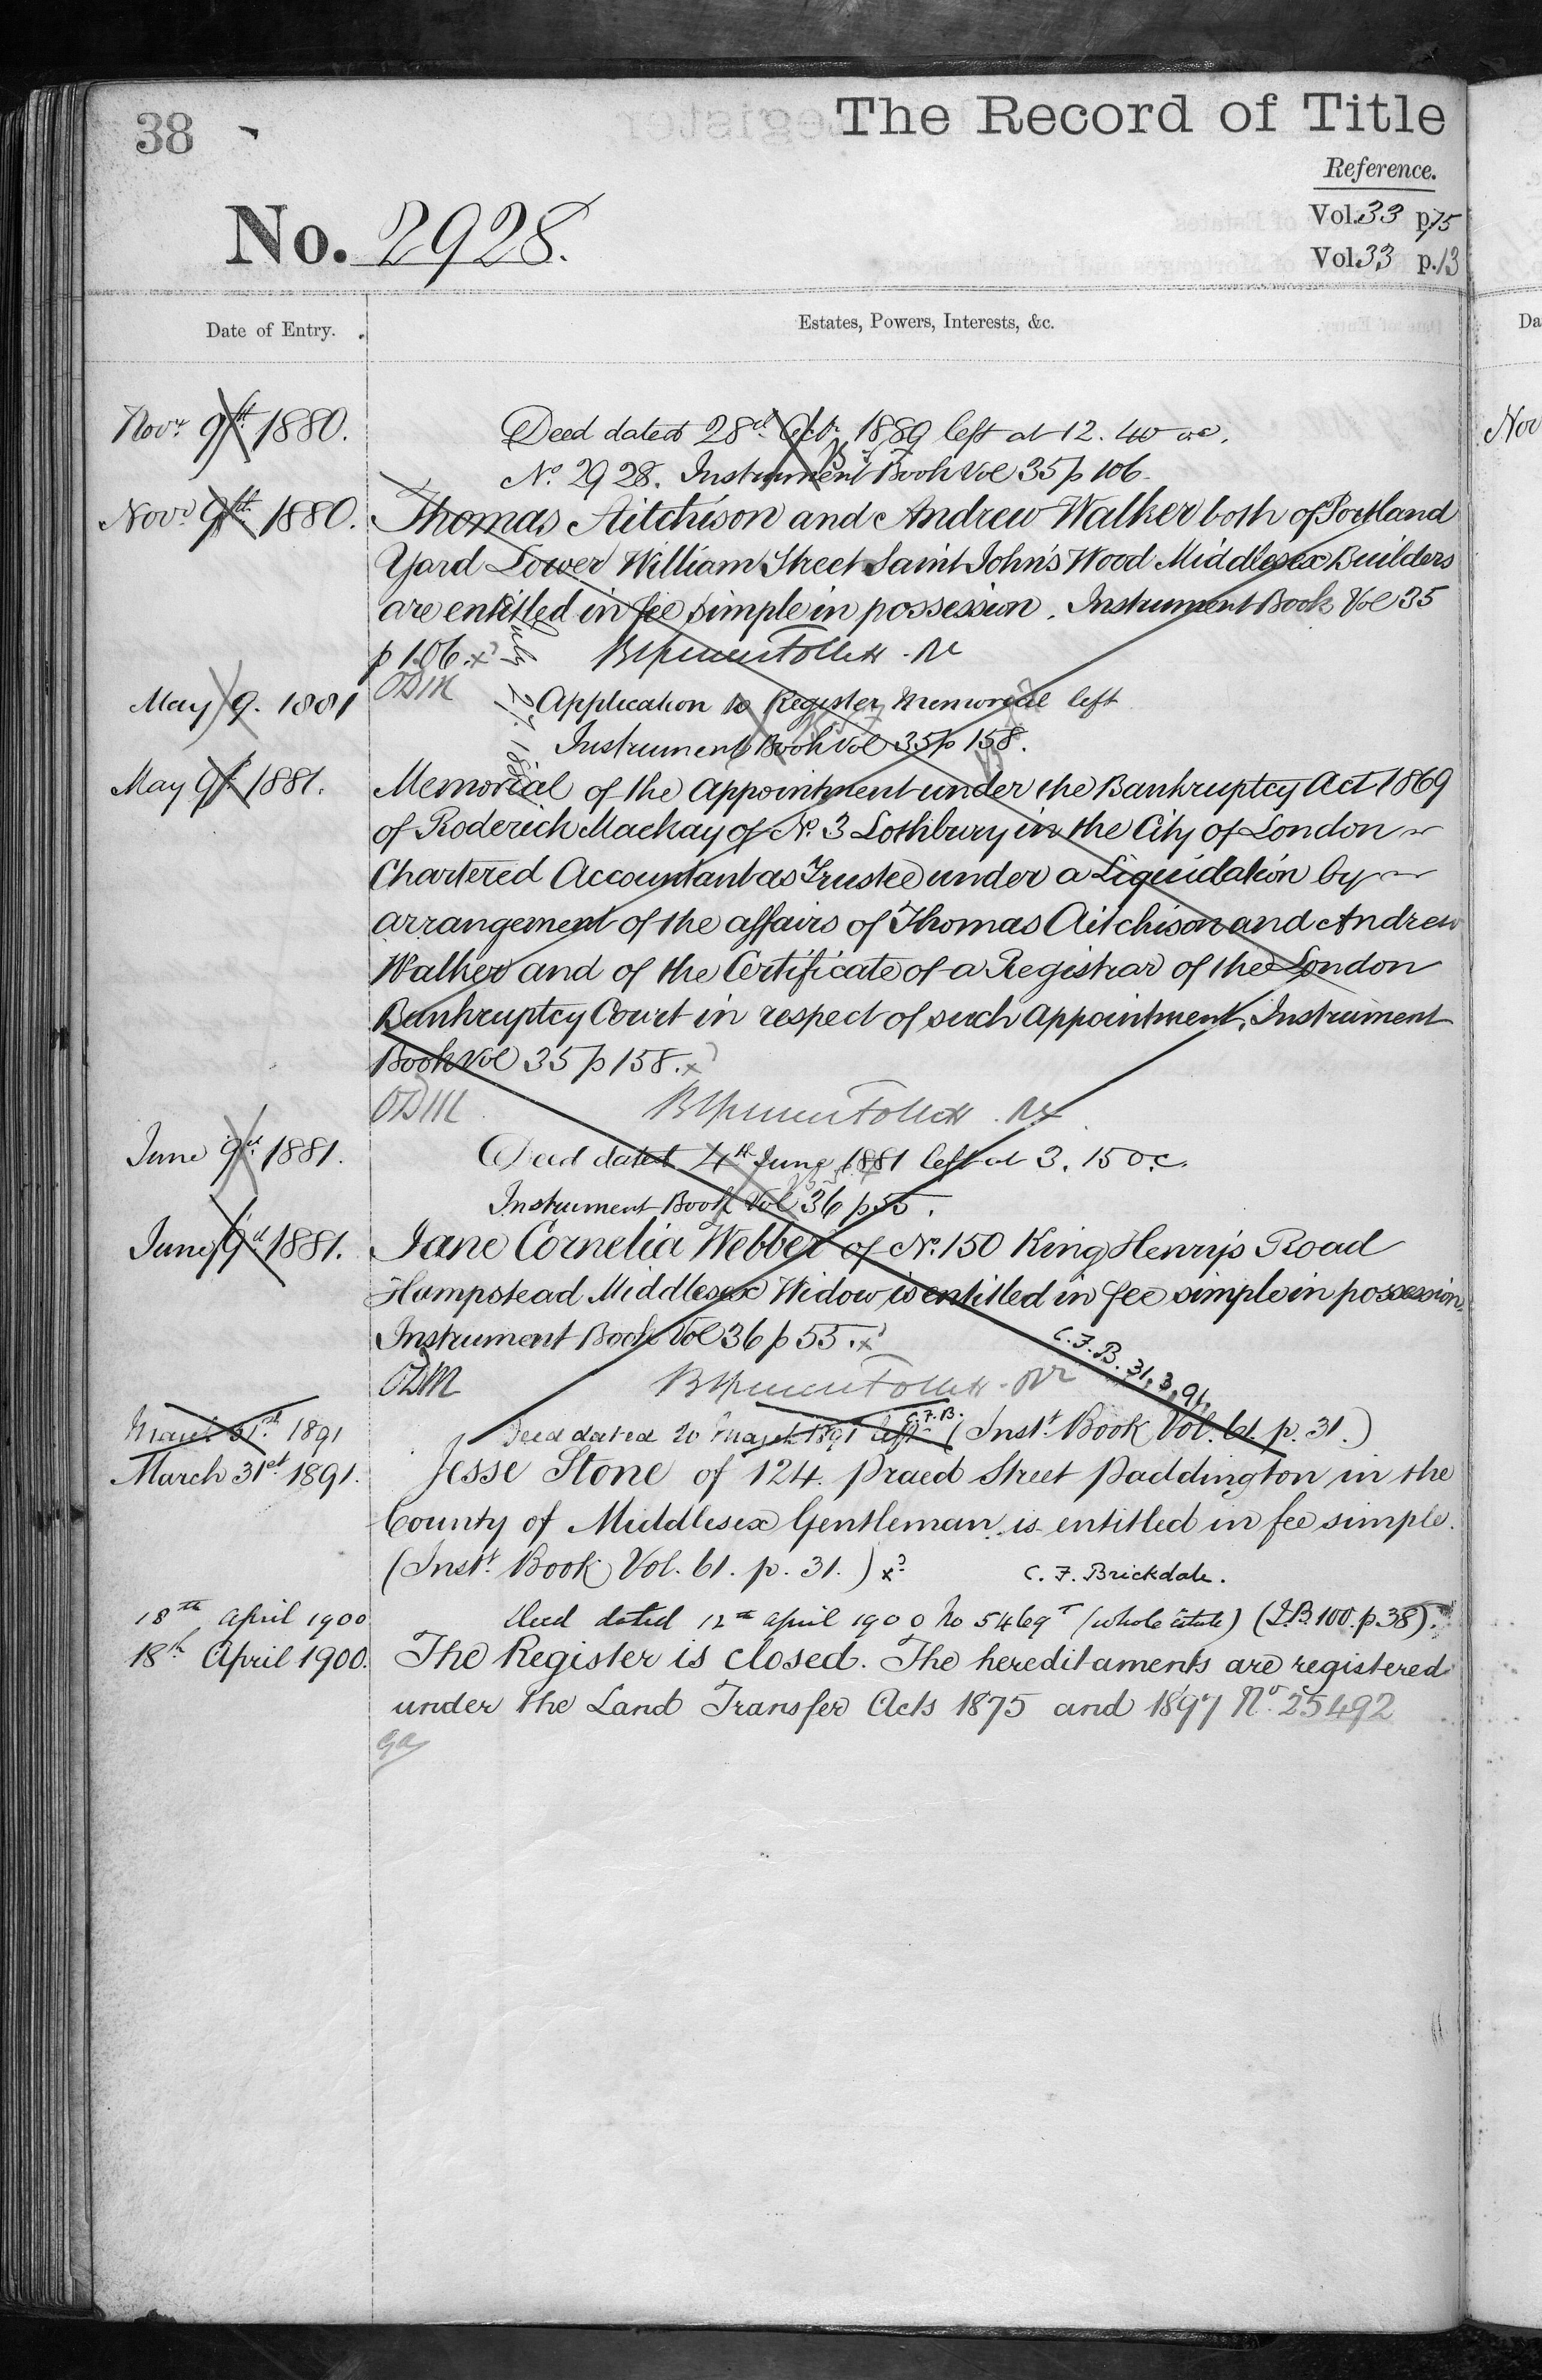 38
The Record of Title
Reference.
Vol. 33 p. 75
Vol. 33 p. 13
No. 2928.
Date of Entry.
Estates, Powers, Interests, &c.
Novr. 9th 1880. Deed dated 28th Octr. 1880 left at 12. 40
No. 2928. Instrument Book Vol 35 p 106.
Novr. 9th 1880. Thomas Aitchison and Andrew Walker both of Portland
Yard Lower William Street Saint John's Wood Middlesex Builders
are entitled in fee simple in possession. Instrument Book Vol 35
p 106.
May 9. 1881 Application to Register Memorial left
Instrument Book Vol 35 p 158.
May 9th 1881. Memorial of the Appointment under the Bankruptcy Act 1869
of Roderick Mackay of No. 3 Lothbury in the City of London
Chartered Accountant as Trustee under a Liquidation by
arrangement of the affairs of Thomas Aitchison and Andrew
Walker and of the Certificate of a Registrar of the London
Bankruptcy Court in respect of such appointment, Instrument
Book Vol 35 p 158.
ODM
June 9th 1881. Deed dated 4th June 1881 left at 3. 15
Instrument Book Vol 36 p 55.
June 9th 1881. Jane Cornelia Webber of No. 150 King Henry's Road
Hampstead Middlesex Widow is entitled in fee simple in possession.
Instrument Book Vol 36 p 55.
C.F.B. 31.3.91.
ODM
C.F.B.
March 31st 1891 Deed dated 20 March 1891 left (Inst. Book Vol. 61. p. 31.)
March 31st 1891. Jesse Stone of 124. Praed Street Paddington in the
County of Middlesex Gentleman is entitled in fee simple.
(Inst. Book Vol. 61. p. 31.) C. F. Brickdale.
18th April 1900 Deed dated 12th April 1900 No 5469 (whole estate) (I.B. 100. p. 38).
18th April 1900. The Register is closed. The hereditaments are registered
under the Land Transfer Acts 1875 and 1897 No. 25492
Da
Nov